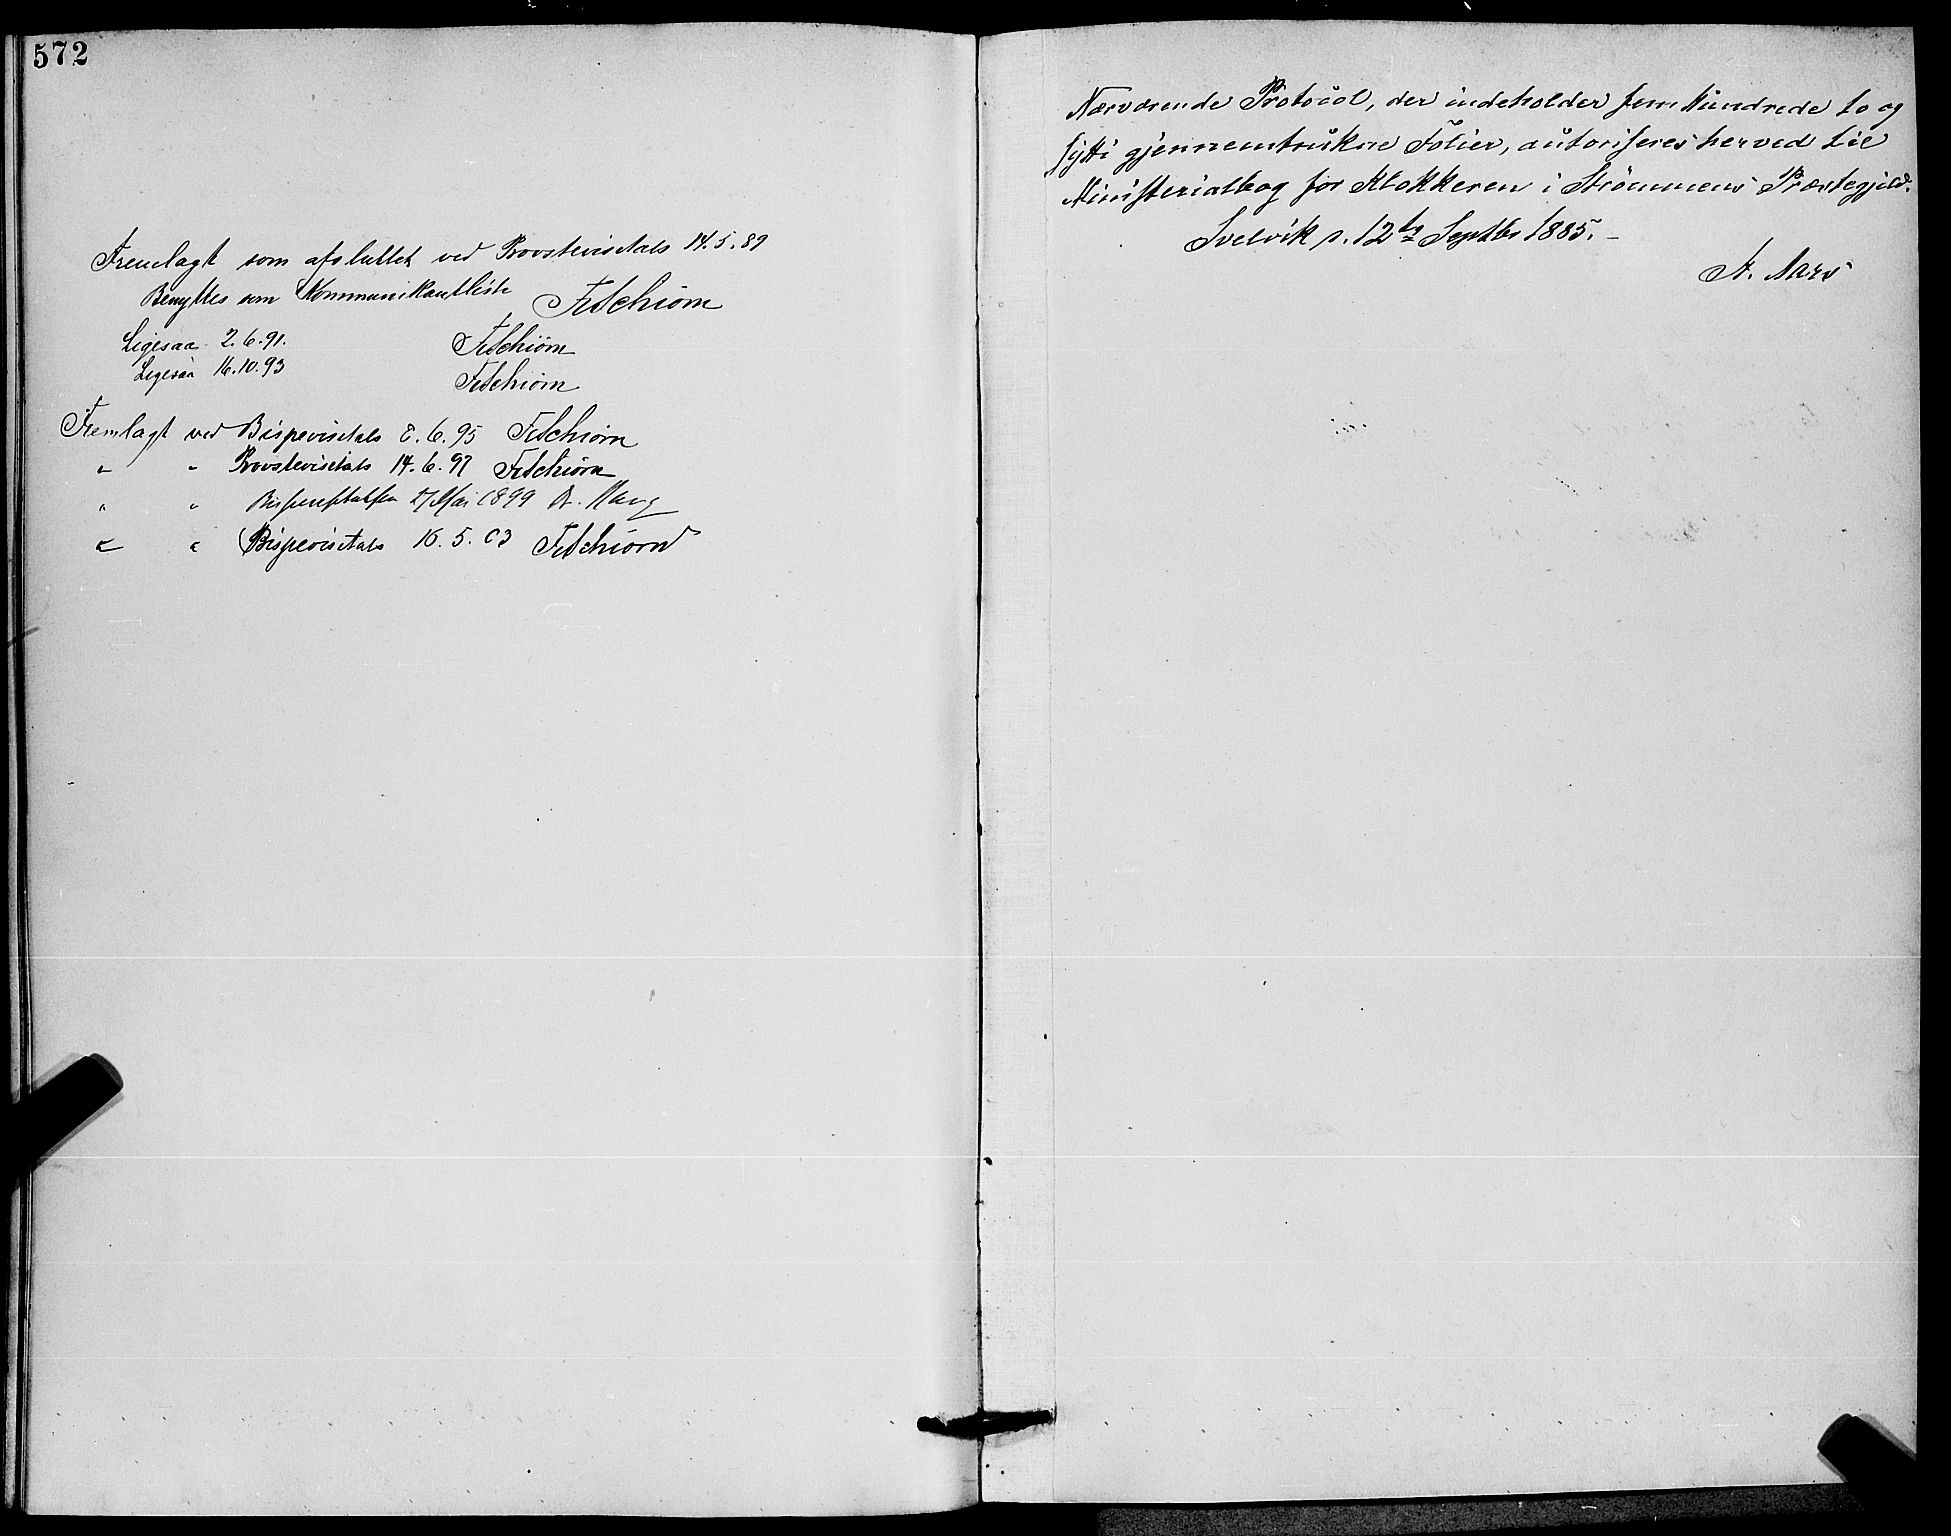 572
Fremlagt som afsluttet ved Provstevisitats 14.5.89
Benyttes som Kommunikantliste FrSchiørn
Ligesaa 2.6.91. FrSchiørn
Ligesaa 16.10.93 FrSchiørn
Fremlagt ved Bispevisitats 8.6.95 FrSchiørn
" " Provstevisitats 14.6.97 FrSchiørn
" " Mai 1899
" " Bispevisitats 16.5.03 FrSchiørn
Nærværende Protocol, der indeholder fem Hundrede to og
sytti gjennemtrukne Folier, autoriseres herved til
Ministerialbog for Klokkeren i Strömmens Præstegjeld.
Svelvik d. 12te Septbr 1885. –
Aars